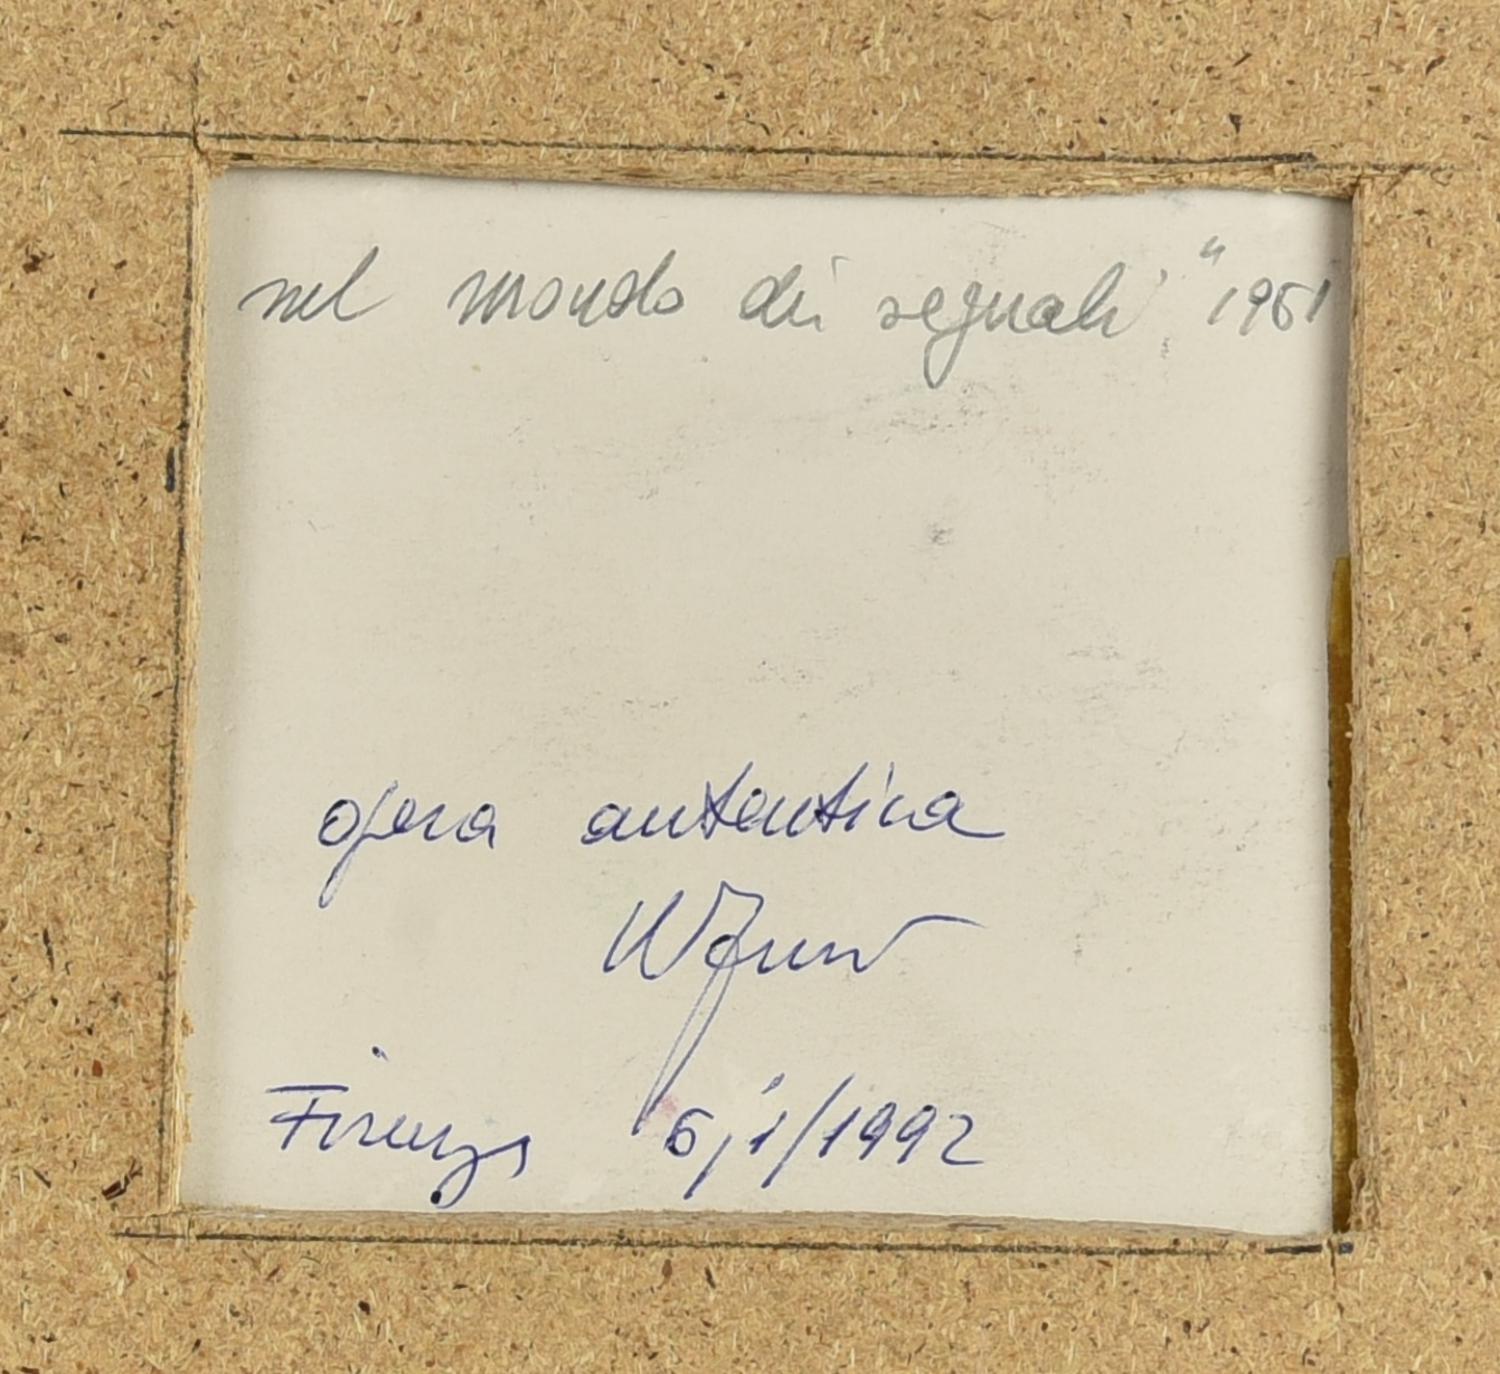 nel mondo dei segnali" 1961
opera autentica
Firenze 6/1/1992